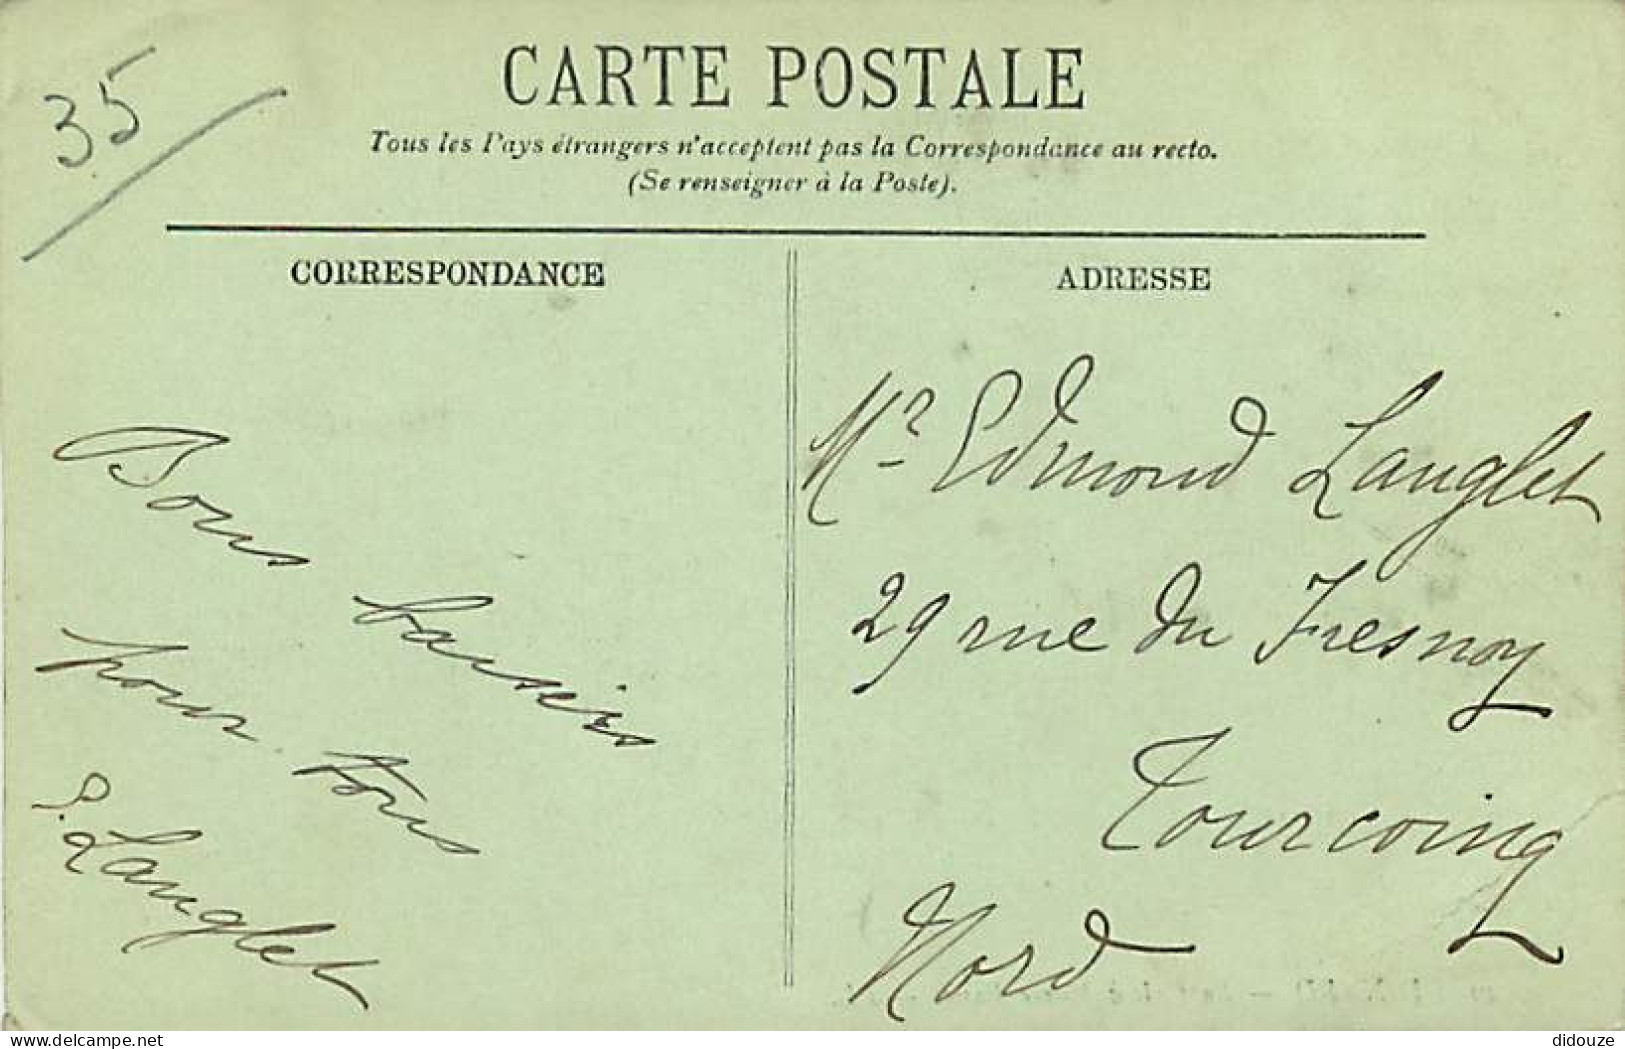 35
CARTE POSTALE
Tous les Pays étrangers n'acceptent pas la Correspondance au recto.
(Se renseigner à la Poste).
CORRESPONDANCE
ADRESSE
Bons baisers
pour tous
Langlet
Mr Edmond Langlet
29 rue du Fresnoy
Tourcoing
Nord
delcampe.net
didouze